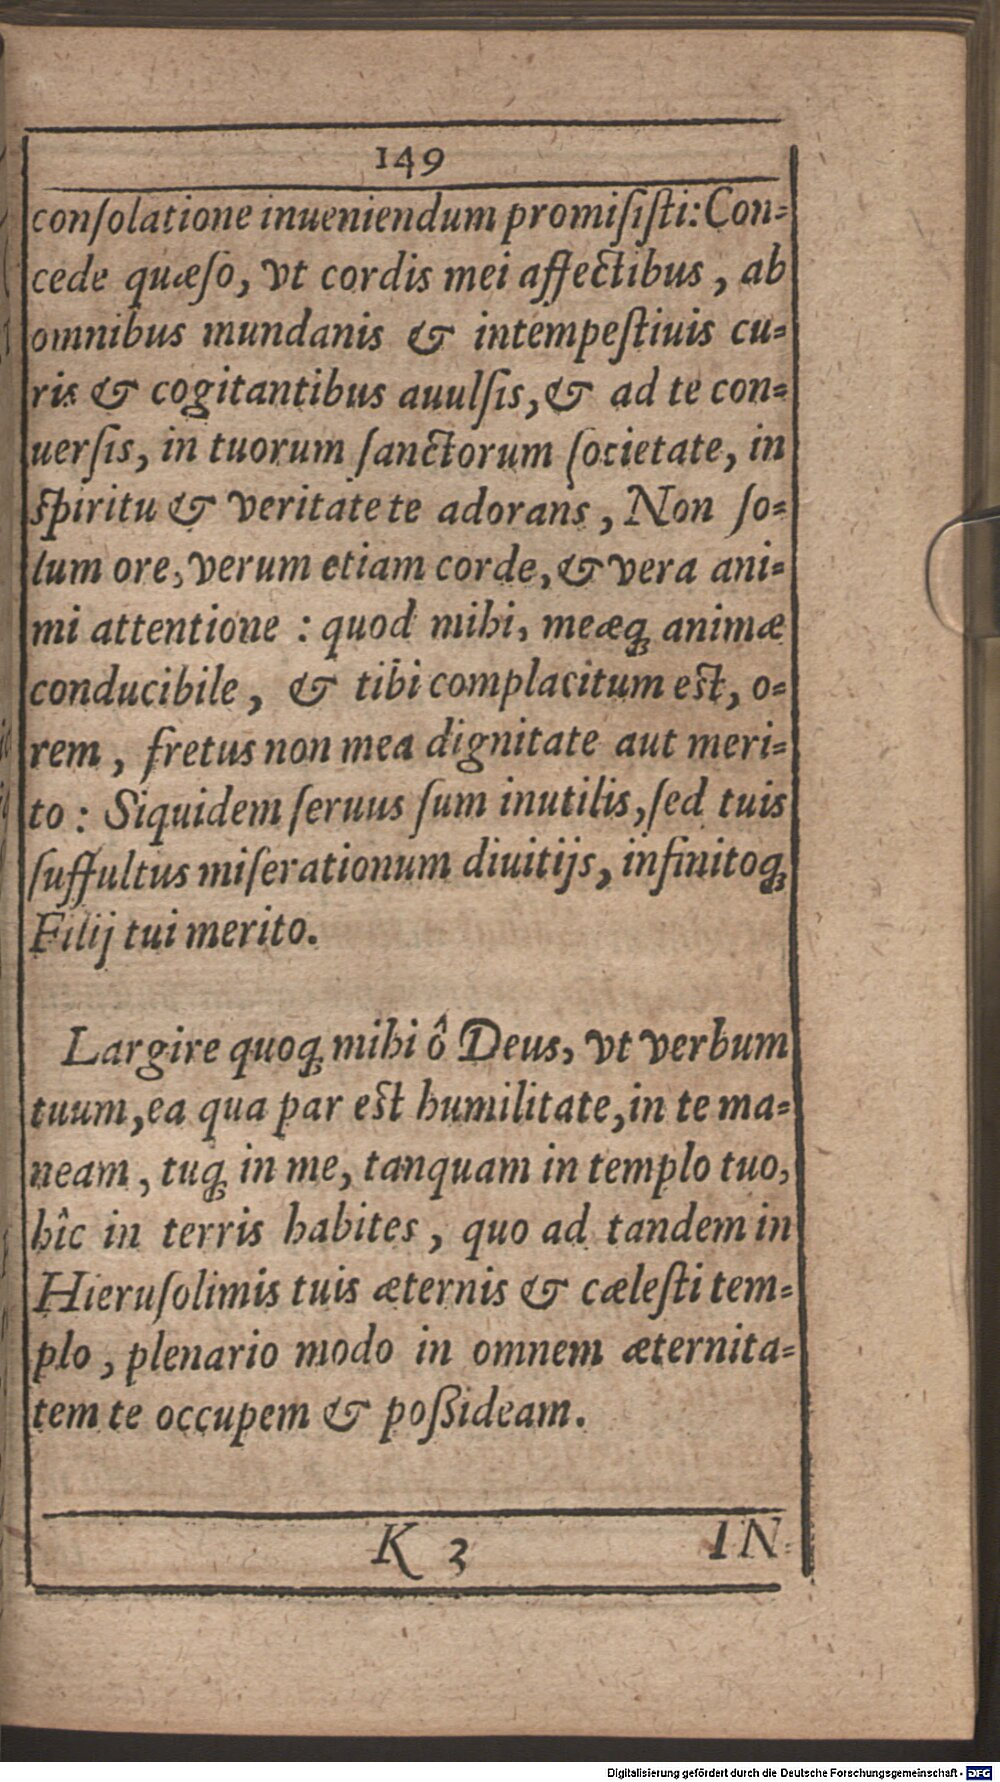 149
conſolatione inueniendum promiſiſti: Con-
cede quæſo, vt cordis mei affectibus, ab
omnibus mundanis & intempeſtiuis cu-
ris & cogitantibus auulſis, & ad te con-
uerſis, in tuorum ſanctorum ſocietate, in
ſpiritu & veritate te adorans, Non ſo-
lum ore, verum etiam corde, & vera ani-
mi attentione : quod mihi, meæq; animæ
conducibile, & tibi complacitum eſt, o-
rem, fretus non mea dignitate aut meri-
to : Siquidem ſeruus ſum inutilis, ſed tuis
ſuffultus miſerationum diuitijs, infinitoq;
Filij tui merito.
Largire quoq; mihi ô Deus, vt verbum
tuum, ea qua par eſt humilitate, in te ma-
neam, tuq; in me, tanquam in templo tuo,
hîc in terris habites, quo ad tandem in
Hieruſolimis tuis æternis & cæleſti tem-
plo, plenario modo in omnem æternita-
tem te occupem & poßideam.
K 3 IN-
Digitalisierung gefördert durch die Deutsche Forschungsgemeinschaft - DFG